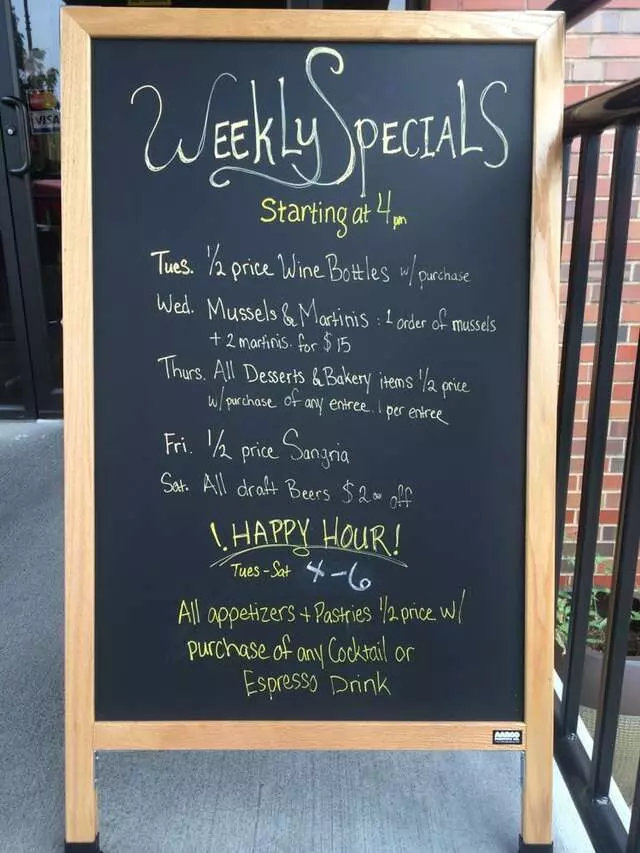 VISA
WEEKLY SPECIALS
Starting at 4 pm
Tues. 1/2 price Wine Bottles w/ purchase
Wed. Mussels & Martinis : 1 order of mussels
+ 2 martinis. for $15
Thurs. All Desserts & Bakery items 1/2 price
w/purchase of any entree. 1 per entree
Fri. 1/2 price Sangria
Sat. All draft Beers $2.00 off
! HAPPY HOUR!
Tues-Sat 4-6
All appetizers + Pastries 1/2 price w/
purchase of any Cocktail or
Espresso Drink
AARCO